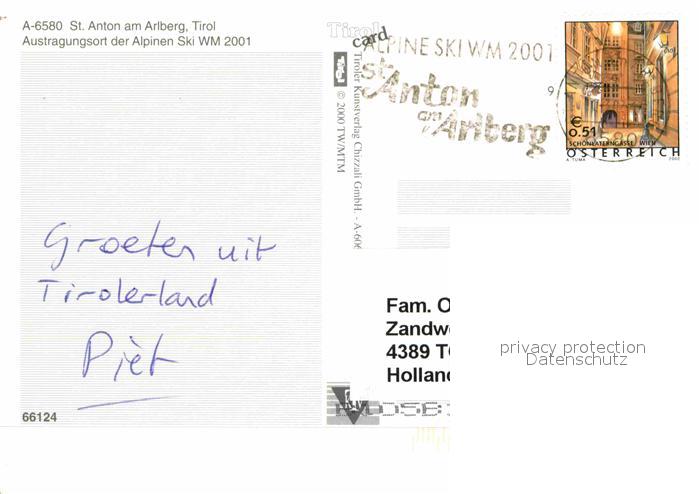 A-6580 St. Anton am Arlberg, Tirol
Austragungsort der Alpinen Ski WM 2001
Groeten uit
Tirolerland
Piet
66124
Tirol
card
Tirol
Tiroler Kunstverlag Chizzali GmbH. - A-606
© 2000 TW/MTM
ALPINE SKI WM 2001
St. Anton
am
Arlberg
€
0.51
SCHÖNLATERNGASSE, WIEN
ÖSTERREICH
A. TUMA 2002
Fam. O
Zandw
4389 T
Hollan
privacy protection
Datenschutz